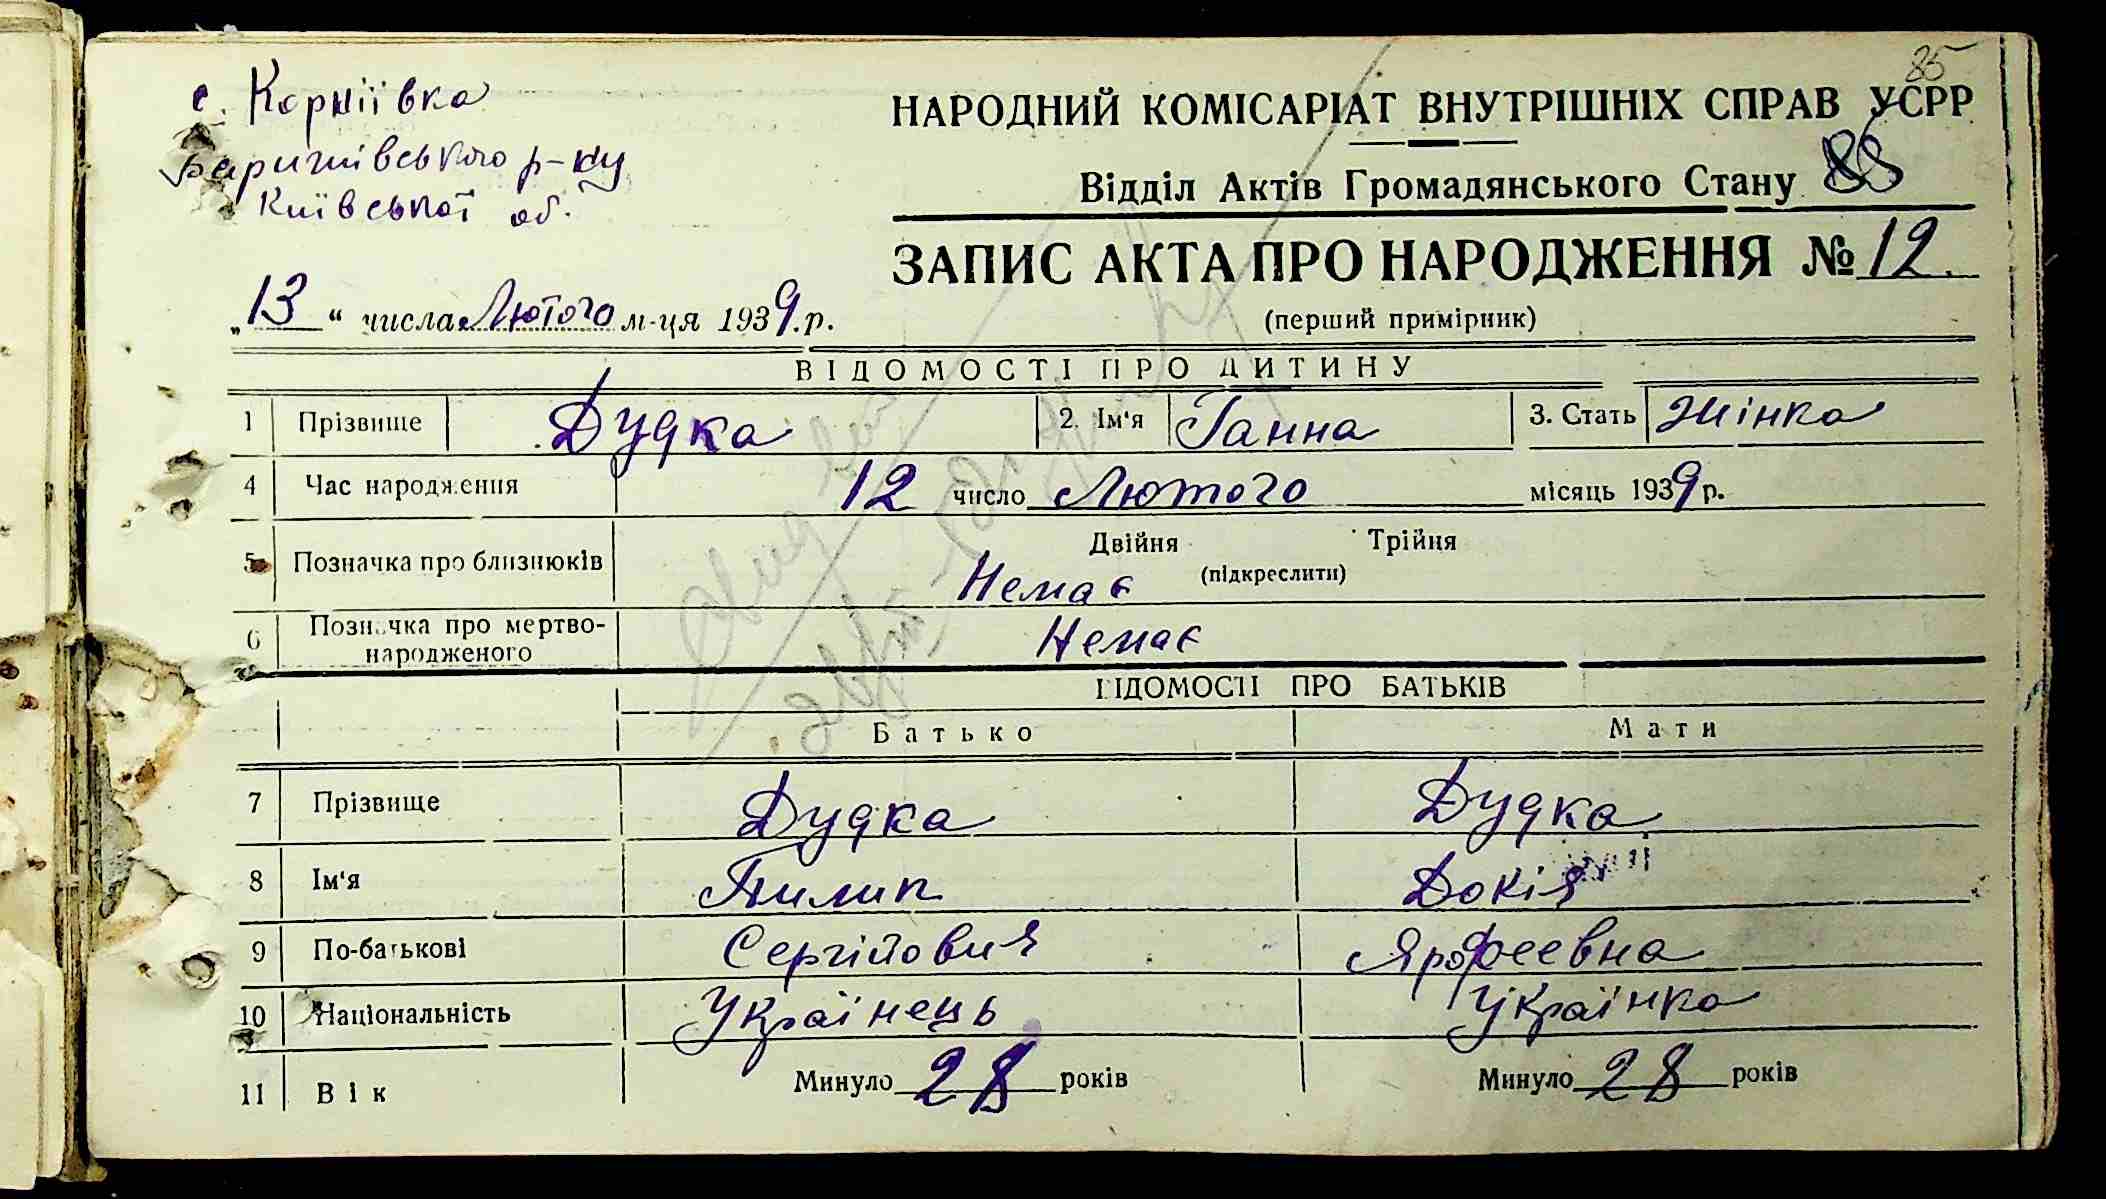 85
с. Корніївка
НАРОДНИЙ КОМІСАРІАТ ВНУТРІШНІХ СПРАВ УСРР
Баришівського р-ну
Київської об.
Відділ Актів Громадянського Стану 88
ЗАПИС АКТА ПРО НАРОДЖЕННЯ № 12.
„13“ числа Лютого м-ця 1939.р.
(перший примірник)
ВІДОМОСТІ ПРО ДИТИНУ
1 Прізвище Дудка 2. Ім'я Ганна 3. Стать Жінка
4 Час народження 12 число Лютого місяць 1939 р.
5 Позначка про близнюків Двійня Трійня
(підкреслити)
Немає
6 Позначка про мертво-
народженого Немає
ВІДОМОСТІ ПРО БАТЬКІВ
Батько Мати
7 Прізвище Дудка Дудка
8 Ім'я Пилип Докія
9 По-батькові Сергійович Ярофеевна
10 Національність Українець Українка
11 Вік Минуло 28 років Минуло 28 років